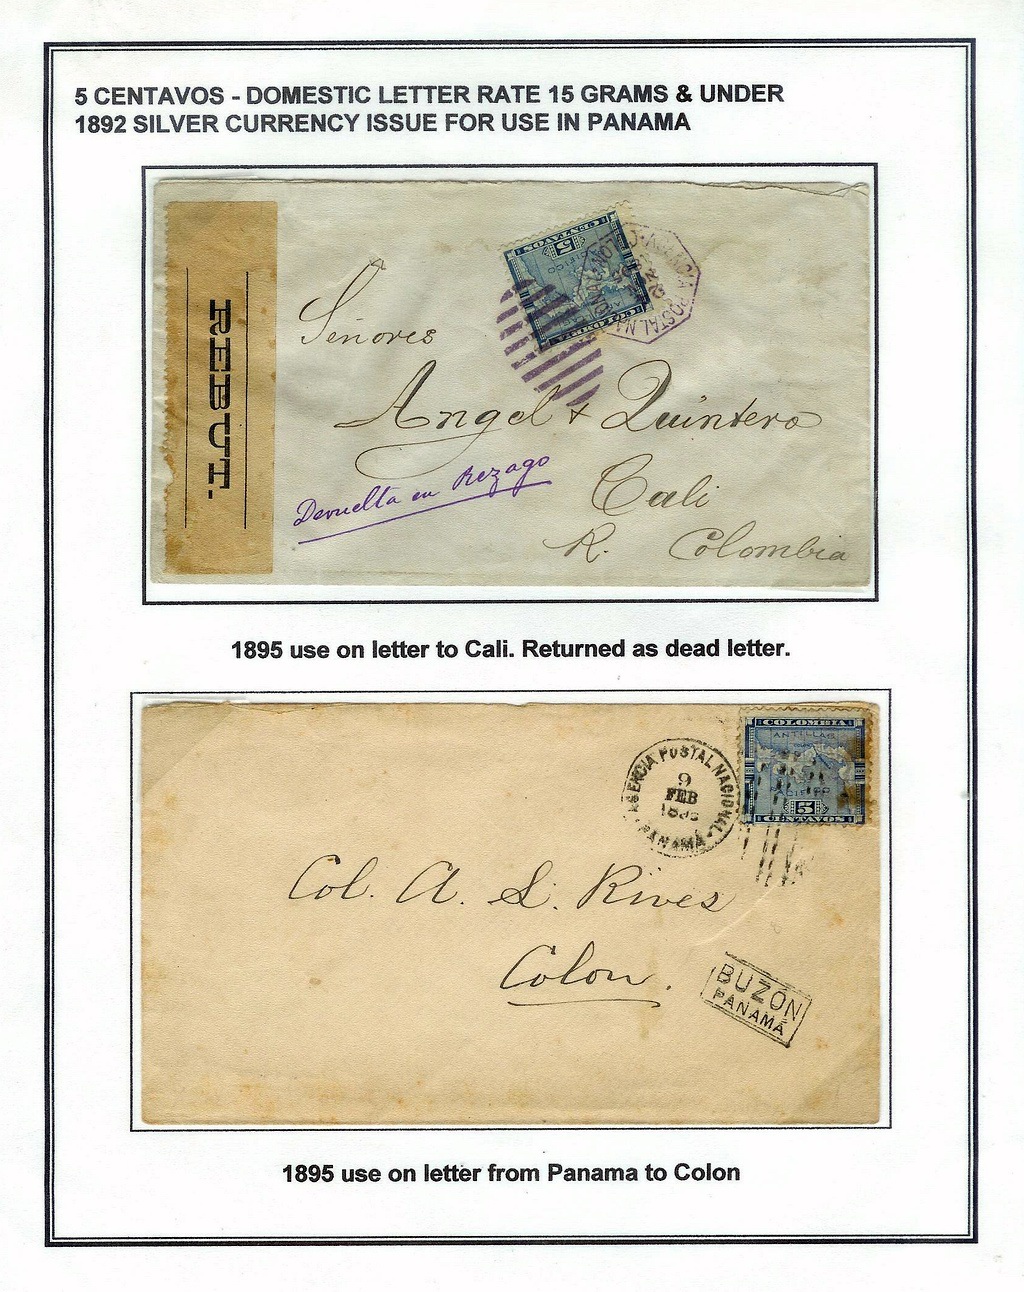 5 CENTAVOS - DOMESTIC LETTER RATE 15 GRAMS & UNDER
1892 SILVER CURRENCY ISSUE FOR USE IN PANAMA
REBUT.
CENTAVOS
5
PACIFICO
COLOMBIA
AGENCIA POSTAL NACIONAL
COLON
Señores
Angel & Quintero
Cali
R. Colombia
Devuelta en Rezago
1895 use on letter to Cali. Returned as dead letter.
COLOMBIA
ANTILLAS
PACIFICO
5
CENTAVOS
AGENCIA POSTAL NACIONAL
9
FEB
PANAMÁ
Col. A. L. Rives
Colon.
BUZÓN
PANAMÁ
1895 use on letter from Panama to Colon